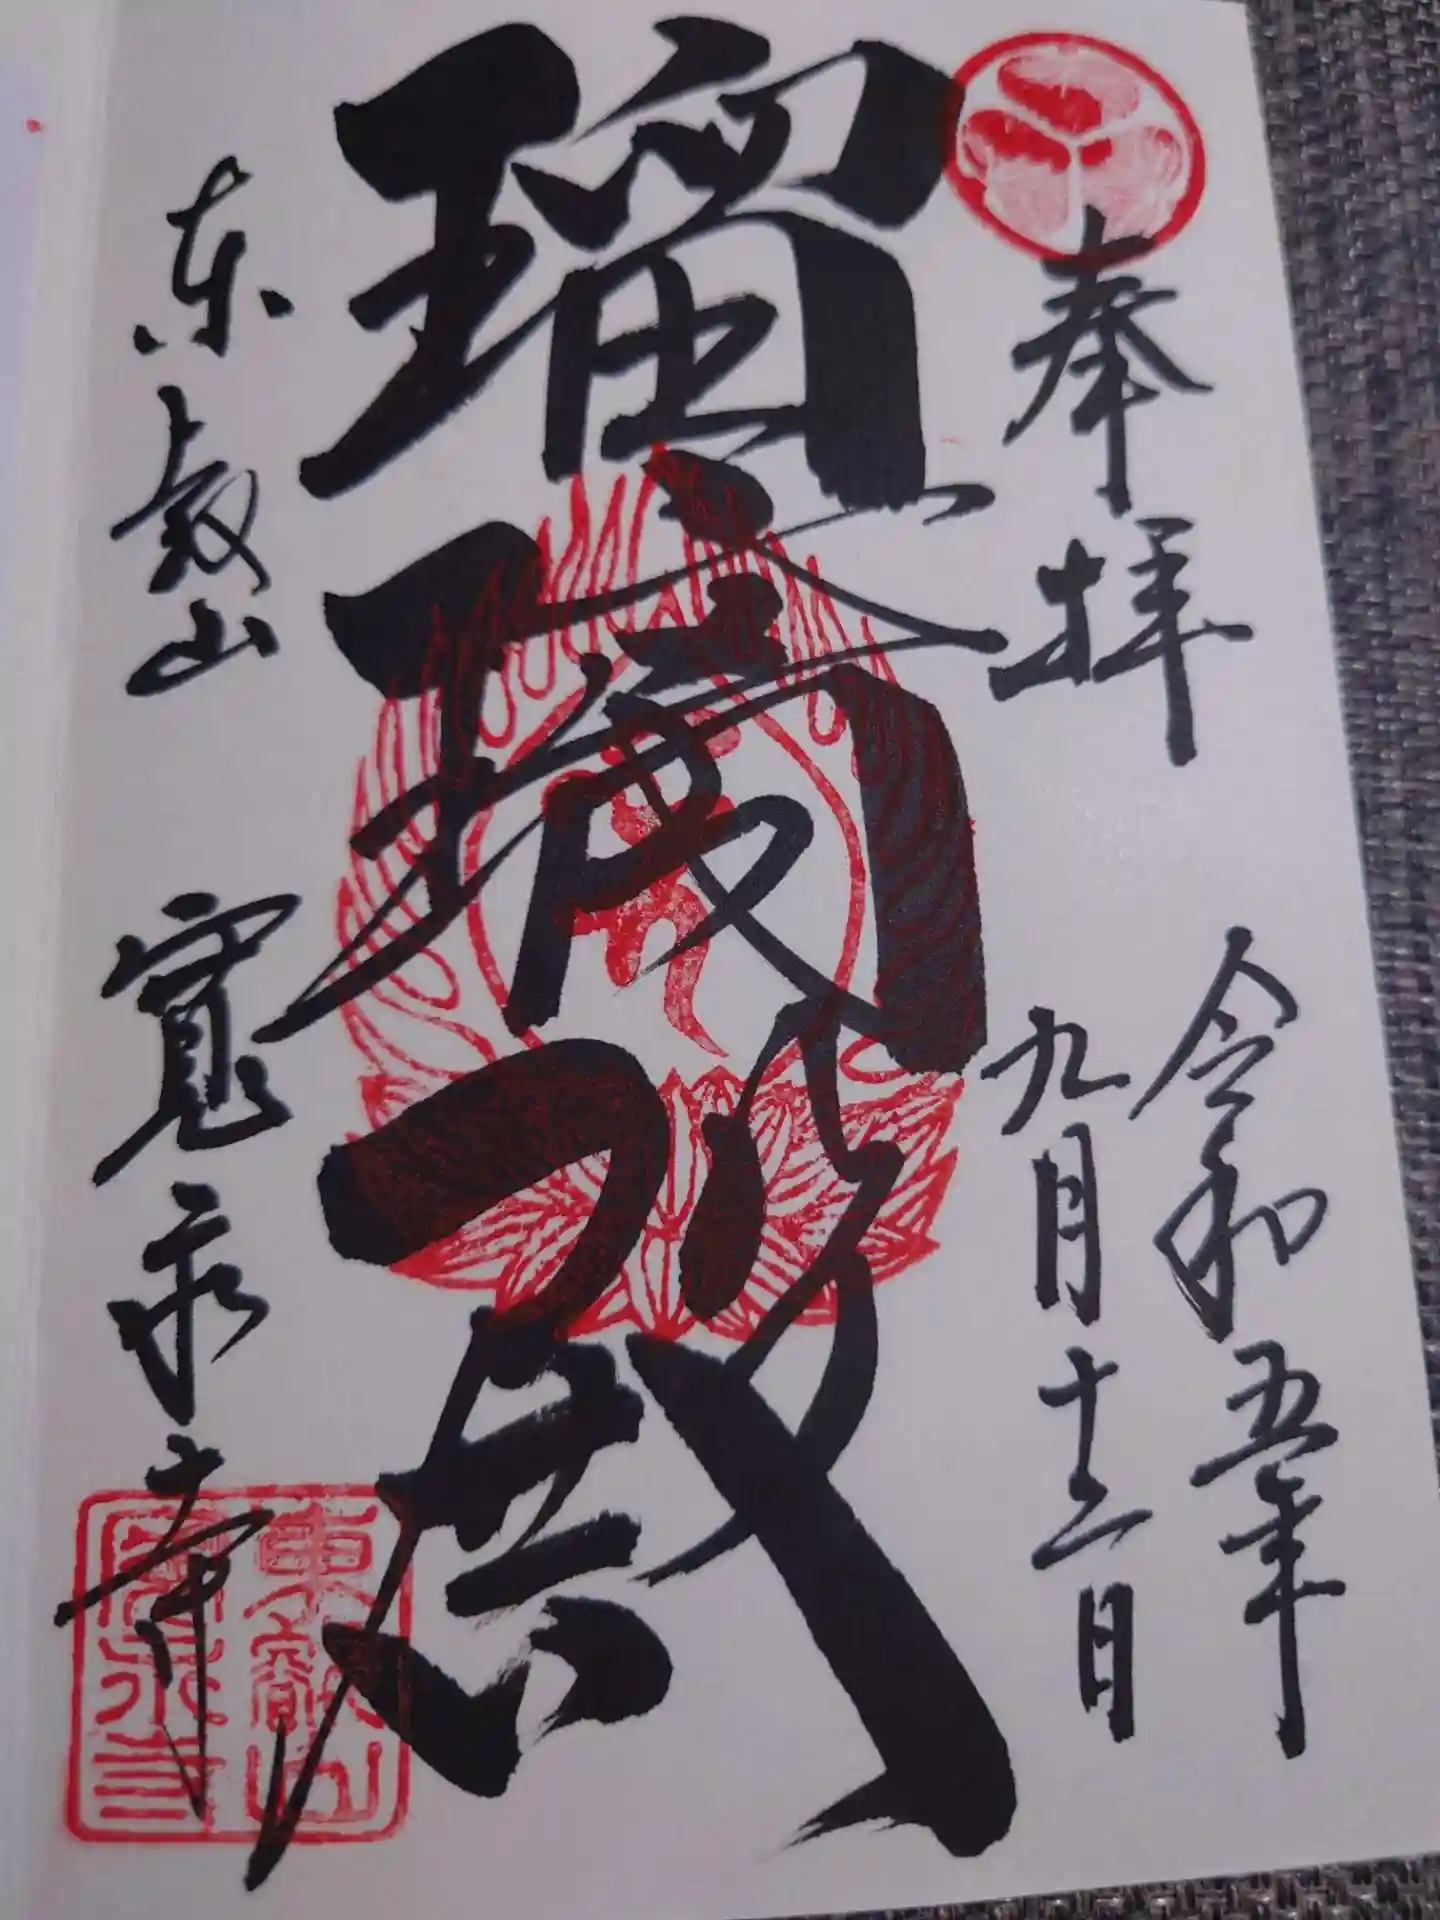 奉拝
令和五年
九月十二日
瑠璃殿
东叡山 寛永寺
東叡山
寛永寺